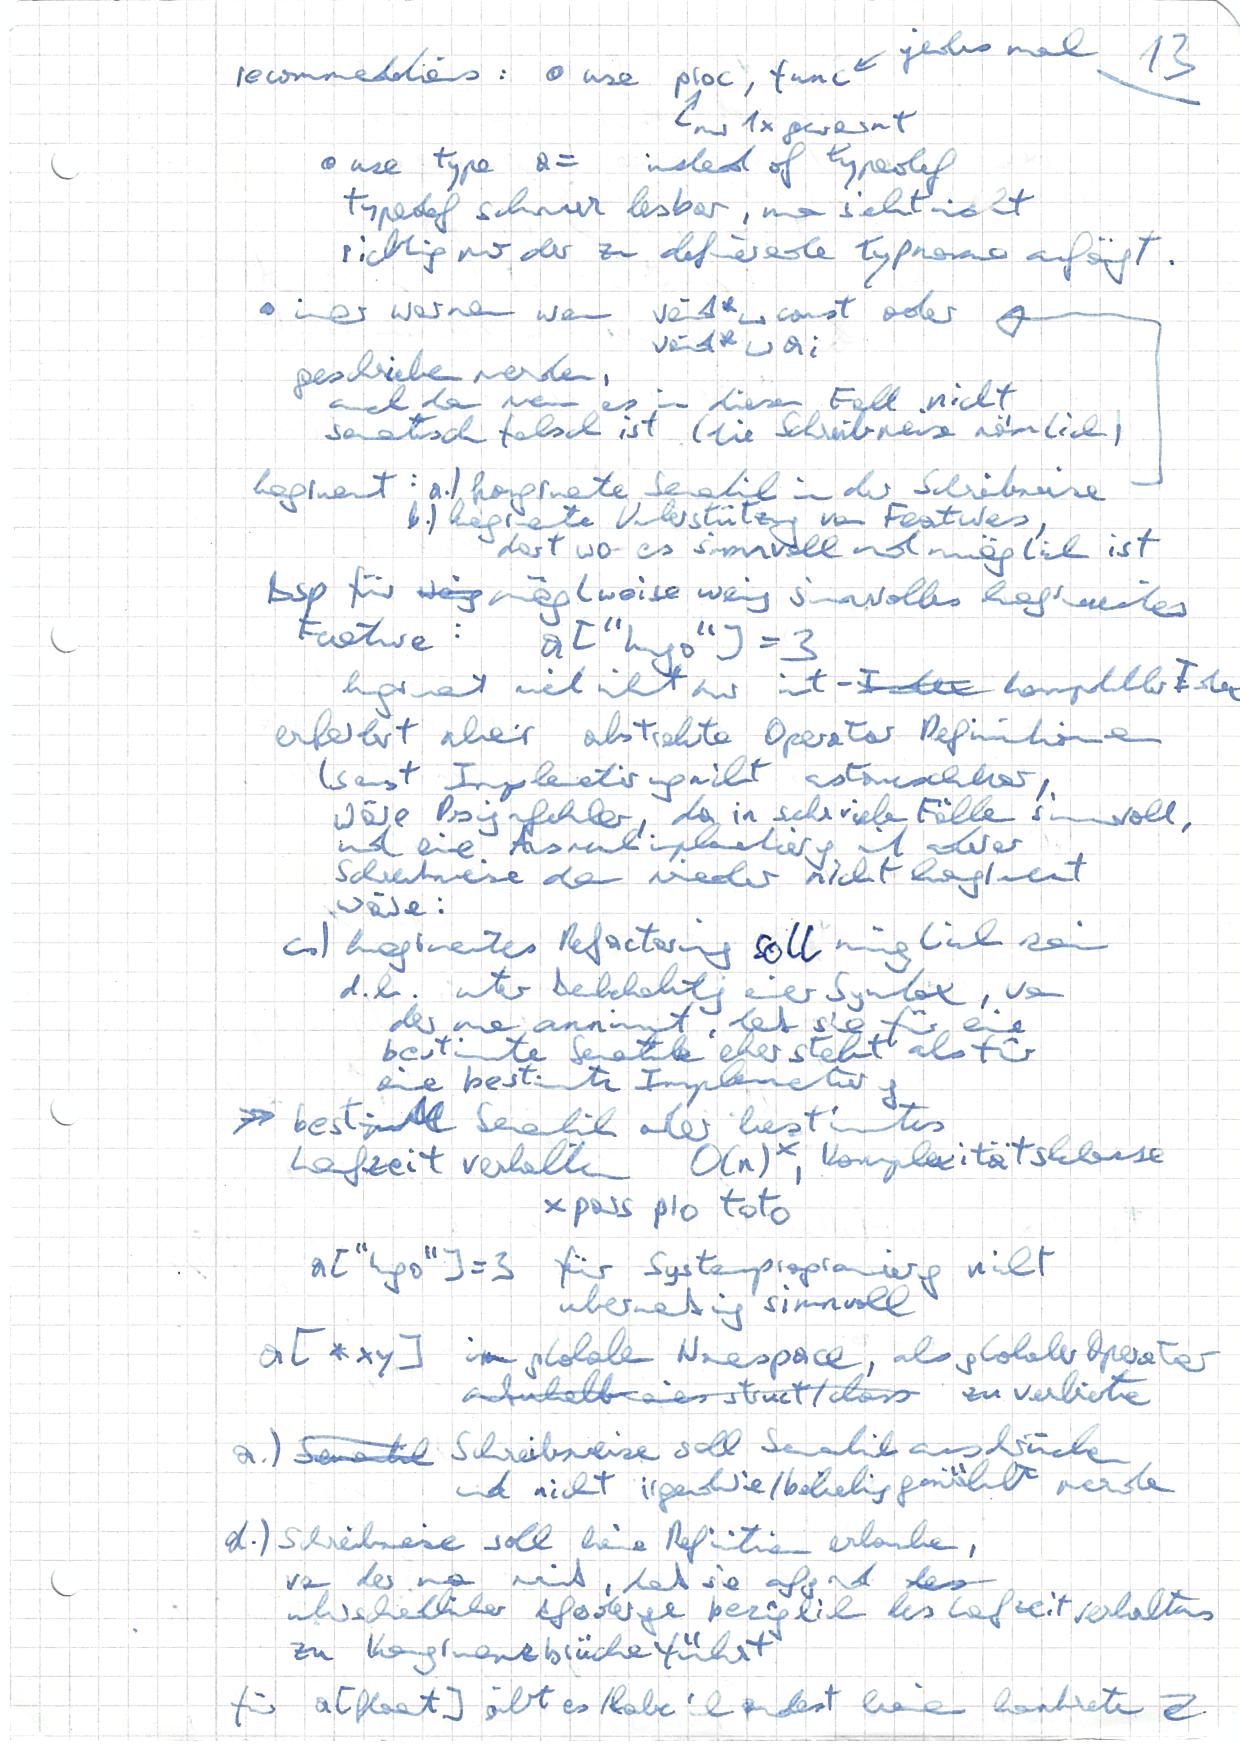 jedes mal 13
recommendations: o use proc, func
nur 1x gewarnt
o use type a= instead of typedef
typedef schwer lesbar, man sieht nicht
richtig wo der zu definierende typname anfängt.
o immer warnen wenn void*␣const oder
void*␣a;
geschrieben werden,
auch dann wenn es in diesem Fall nicht
semantisch falsch ist (die Schreibweise nämlich)
kongruent: a.) kongruente Semantik in der Schreibweise
b.) kongruente Unterstützung von Features,
dort wo es sinnvoll und möglich ist
bsp für möglweise wenig sinnvolles kongruentes
Feature: a["hugo"]=3
kongruent weil nicht nur int- kompatibler Index
erfordert aber abstrakte Operator Definitionen
(sonst Implementierung nicht austauschbar,
wäre Designfehler, da in sehr viele Fälle sinnvoll,
und eine Auswahlimplementierung mit anderer
Schreibweise dann wieder nicht kongruent
wäre:
c.) kongruentes Refactoring soll möglich sein
d.h. unter Beibehaltung einer Syntax, von
der man annimmt, daß sie für eine
bestimmte Semantik eher steht als für
eine bestimmte Implementierung
>> bestimmte Semantik oder bestimmtes
Laufzeit verhalten O(n)ˣ, Komplexitätsklasse
x pars pro toto
a["hugo"]=3 für Systemprogrammierung nicht
übermäßig sinnvoll
a[**xy] im globalen Namespace, als globaler Operator
struct/class zu verbieten
a.) Schreibweise soll Semantik ausdrücken
und nicht irgendwie/beliebig gewählt werden
d.) Schreibweise soll keine Definition erlauben,
von der man weiß, daß sie aufgrund
unterschiedlicher Anforderungen bezüglich des Laufzeitverhaltens
zu Kongruenzbrüchen führt
für a[float] gibt es/habe ich zumindest keine konkrete